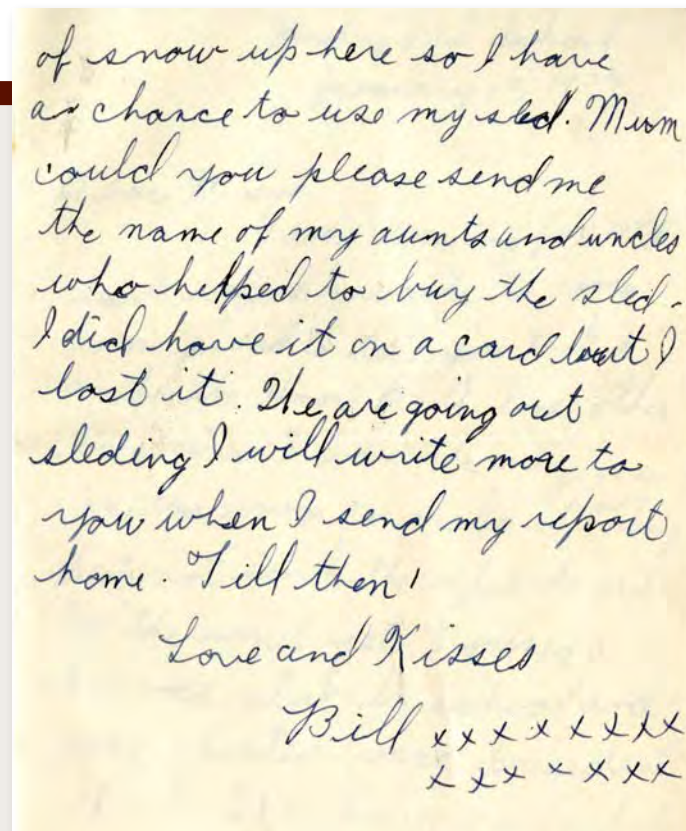 of snow up here so I have
a chance to use my sled. Mum
could you please send me
the name of my aunts and uncles
who helped to buy the sled.
I did have it on a card but I
lost it. We are going out
sleding I will write more to
you when I send my report
home. Till then!
Love and Kisses
Bill xxxxxxxx
xxxxxxx